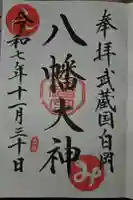 奉拝武蔵国白岡
八幡大神
令和七年十一月三十日